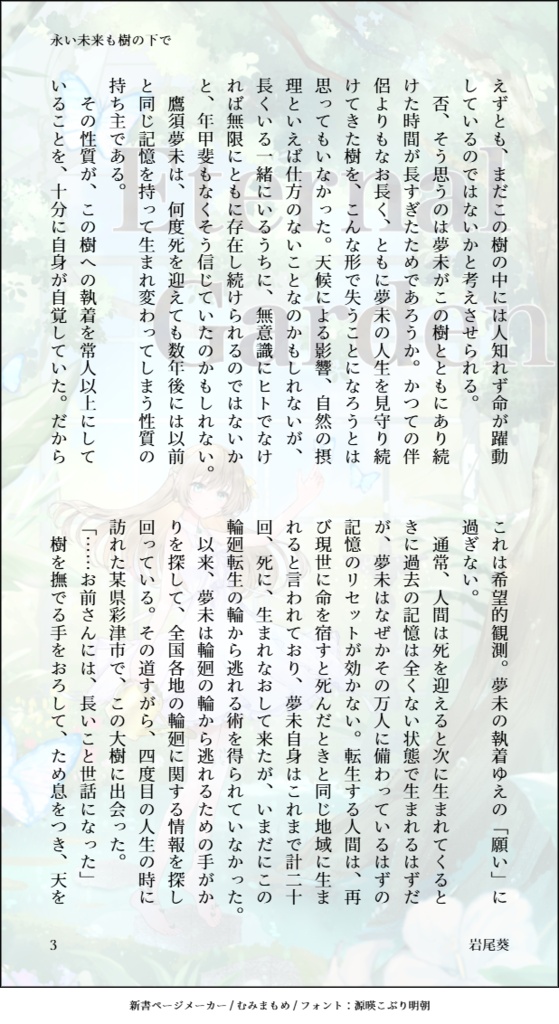 永い未来も樹の下で
Eternal
Garden
えずとも、まだこの樹の中には人知れず命が躍動
しているのではないかと考えさせられる。
否、そう思うのは夢未がこの樹とともにあり続
けた時間が長すぎたためであろうか。かつての伴
侶よりもなお長く、ともに夢未の人生を見守り続
けてきた樹を、こんな形で失うことになろうとは
思ってもいなかった。天候による影響、自然の摂
理といえば仕方のないことなのかもしれないが、
長くいる一緒にいるうちに、無意識にヒトでなけ
れば無限にともに存在し続けられるのではないか
と、年甲斐もなくそう信じていたのかもしれない。
鷹須夢未は、何度死を迎えても数年後には以前
と同じ記憶を持って生まれ変わってしまう性質の
持ち主である。
その性質が、この樹への執着を常人以上にして
いることを、十分に自身が自覚していた。だから
これは希望的観測。夢未の執着ゆえの「願い」に
過ぎない。
通常、人間は死を迎えると次に生まれてくると
きに過去の記憶は全くない状態で生まれるはずだ
が、夢未はなぜかその万人に備わっているはずの
記憶のリセットが効かない。転生する人間は、再
び現世に命を宿すと死んだときと同じ地域に生ま
れると言われており、夢未自身はこれまで計二十
回、死に、生まれなおして来たが、いまだにこの
輪廻転生の輪から逃れる術を得られていなかった。
以来、夢未は輪廻の輪から逃れるための手がか
りを探して、全国各地の輪廻に関する情報を探し
回っている。その道すがら、四度目の人生の時に
訪れた某県彩津市で、この大樹に出会った。
「……お前さんには、長いこと世話になった」
樹を撫でる手をおろして、ため息をつき、天を
3
岩尾葵
新書ページメーカー / むみまもめ / フォント：源暎こぶり明朝